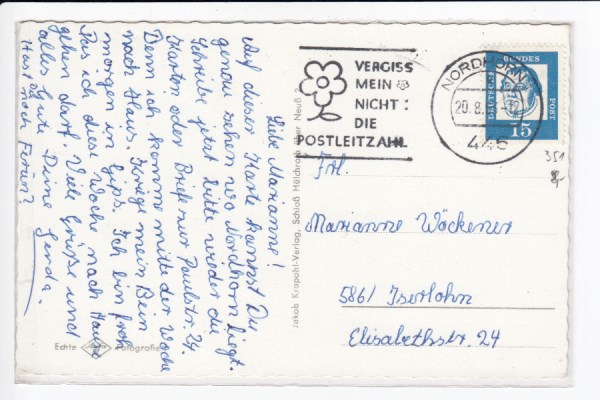 Liebe Marianne!
Auf dieser Karte kannst Du
genau sehen wo Nordhorn liegt.
Schreibe jetzt bitte wieder die
Karten oder Briefe nur Paulstr. 24.
Denn ich komme mitte der Woche
nach Haus. Kriege mein Bein
morgen in Gips. Ich bin froh
das ich diese Woche nach Hause
gehen darf. Viele Grüße und
alles Gute Deine Gerda.
Hast Du noch Ferien?
Echte Fotografie
Jakob Krapohl-Verlag, Schloß Hülchrath über Neuß
VERGISS
MEIN
NICHT:
DIE
POSTLEITZAHL
NORDHORN
20.8.
446
DEUTSCHE BUNDESPOST
15
351
Frl.
Marianne Wöckener
5861 Iserlohn
Elisabethstr. 24